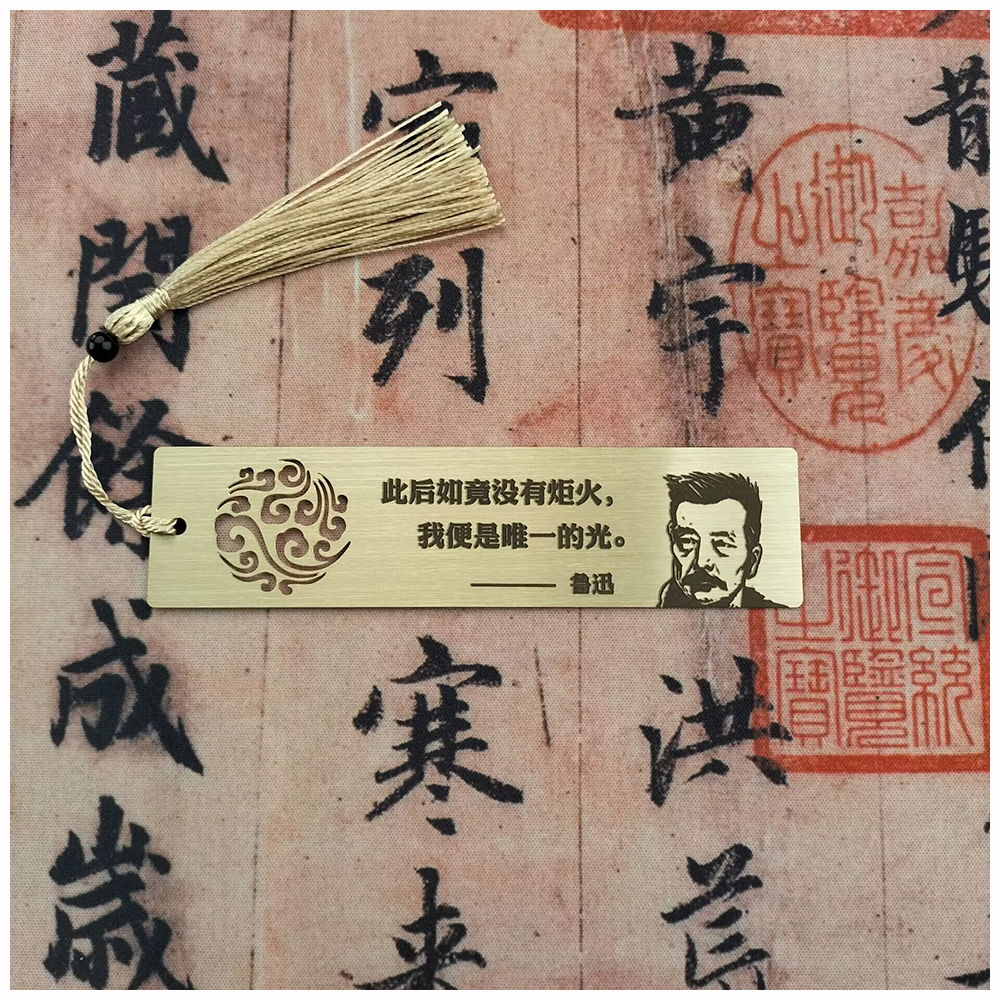 此后如竟没有炬火，
我便是唯一的光。
—— 鲁迅
散
黄宇洪荒
列寒来
藏閏餘成歲
嘉慶
御覽
之寶
宣統
御覽
之寶